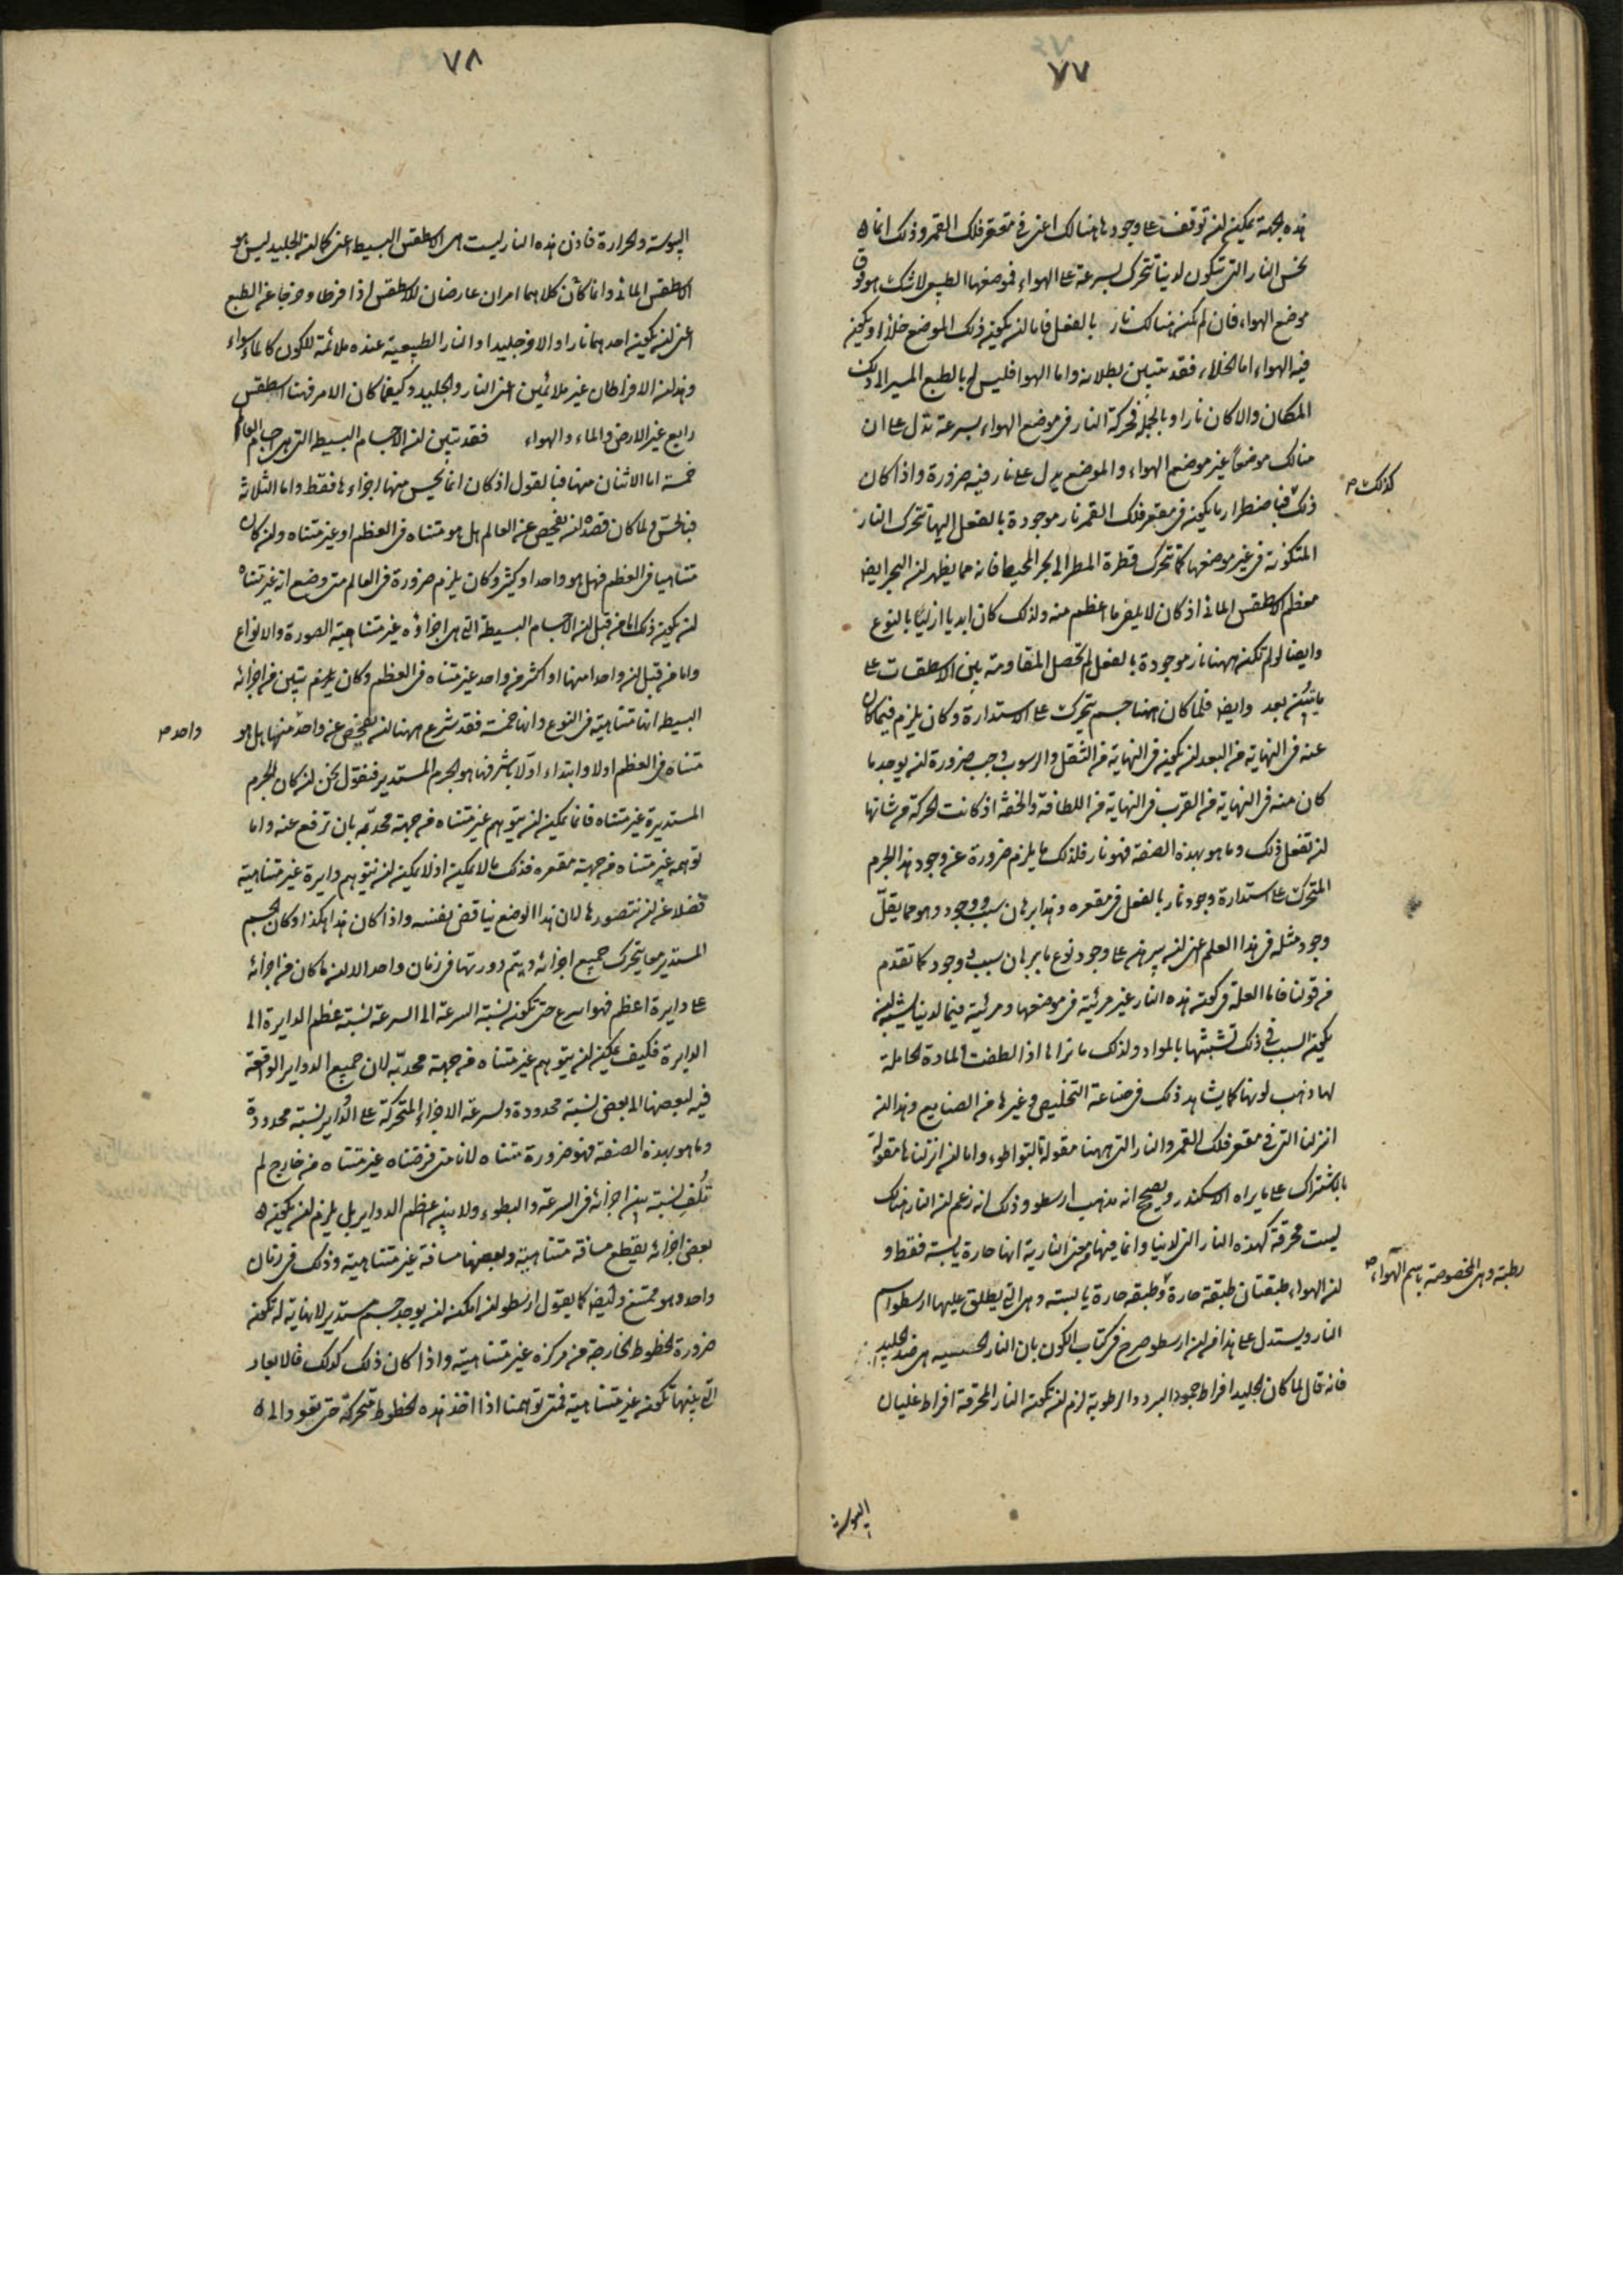 ٧٧
هذه بجهة يمكن ان نوقف على وجودها هنالك اعنى فى مقعر فلك القمر وذلك انما
نحس النار التى تتكون لدينا تتحرك بسرعة على الهواء فموضعها الطبيعى لا شك هو فوق
موضع الهواء فان لم تكن هنالك نار بالفعل فاما ان يكون ذلك الموضع خلاء او يكون
فيه الهواء اما الخلاء فقد تبين بطلانه واما الهوا فليس له بالطبع المسير الى ذلك
المكان والا كان نارا وبالجملة فحركة النار فى موضع الهواء بسرعة تدل على ان
هنالك موضعا غير موضع الهواء والموضع يدل على نار فيه ضرورة واذا كان
ذلك كذلك فباضطرار ما يكون فى مقعر فلك القمر نار موجودة بالفعل اليها تتحرك النار
المتكونة فى غير موضعها كما تتحرك قطرة المطر الى البحر المحيط فانه مما يظهر ان البحر ايضا
معظم الاسطقس المائى اذ كان لا يلفى ما اعظم منه ولذلك كان ابديا ازليا بالنوع
وايضا لو لم تكن ههنا نار موجودة بالفعل لم تحصل المقاومة بين الاسطقسات على
ما يتبين بعد وايضا فلما كان ههنا جسم يتحرك على الاستدارة وكان يلزم فيما كان
عنه فى النهاية من البعد ان يكون فى النهاية من الثقل والرسوب وجب ضرورة ان يوجد ما
كان منه فى النهاية من القرب فى النهاية من اللطافة والخفة اذ كانت الحركة من شانها
ان تفعل ذلك وما هو بهذه الصفة فهو نار فلذلك ما يلزم ضرورة عن وجود هذا الجرم
المتحرك على استدارة وجود نار بالفعل فى مقعره وهذا برهان سبب ووجود وهو مما يقل
وجود مثله فى هذا العلم اعنى ان يبرهن على وجود نوع ما ببرهان سبب ووجود كما تقدم
من قولنا فاما العلة فى كون هذه النار غير مرئية فى موضعها ومرئية فيما لدينا يشبه ان
يكون السبب فى ذلك تشبثها بالمواد ولذلك ما ترا ما اذا لطفت المادة الحاملة
لها ذهب لونها كما يشاهد ذلك فى صناعة التخليص وغيرها من الصنايع وهذا ان
انزلنا التى فى مقعر فلك القمر والنار التى ههنا مقولة بالتواطوء واما ان انزلناها مقولة
بالاشتراك على ما يراه الاسكندر ويصحح انه مذهب ارسطو وذلك انه زعم ان النار هناك
ليست محرقة كهذه النار التى لدينا وانما فيها من معنى النارية انها حارة يابسة فقط و
ان الهواء طبقتان طبقة حارة رطبة وهى المخصوصة باسم الهواء وطبقة حارة يابسة وهى التى يطلق عليها ارسطو اسم
النار ويستدل على هذا من ان ارسطو صرح فى كتاب الكون بان النار المحسوسة هى ضد الجليد
فانه قال لما كان الجليد افراط جمود البرد والرطوبة لزم ان تكون النار المحرقة افراط غليان
اليبوسة
٧٨
اليبوسة والحرارة فاذن هذه النار ليست هى الاسطقس البسيط اعنى كما ان الجليد ليس هو
الاسطقس المائى وانما كان كلاهما امران عارضان للاسطقس اذا فرطا وخرجا عن الطبع
اعنى ان يكون احدهما نارا والاخر جليدا والنار الطبيعية عنده ملائمة للكون كالماء سواء
وهذان الافراطان غير ملائمين اعنى النار والجليد وكيفما كان الامر فهنا اسطقس
رابع غير الارض والماء والهواء فقد تبين ان الاجسام البسيطة التى هى اجسام العالم
خمسة اما الاثنان منها فبالقول اذ كان انما يحس منها اجزاءها فقط واما الثلاثة
فبالحس ولما كان قصده ان يفحص عن العالم هل هو متناه فى العظم او غير متناه وان كان
متناهيا فى العظم فهل هو واحد او كثير وكان يلزم ضرورة فى العالم متى وضع انه غير متناه
ان يكون ذلك اما من قبل ان الاجسام البسيطة التى هى اجزاؤه غير متناهية الصورة والانواع
واما من قبل ان واحدا منها او اكثر من واحد غير متناه فى العظم وكان تبين من اجزائه
البسيطة انها متناهية فى النوع وانها خمسة فقد شرع ههنا ان يفحص عن واحد واحد منها هل هو
متناه فى العظم اولا وابتداء اولا باشرفها هو الجرم المستدير فنقول نحن ان كان الجرم
المستديرة غير متناه فانما يمكن ان يتوهم غير متناه من جهة محدبه بان نرفع عنه واما
توهمه غير متناه من جهة مقعره فذلك ما لا يمكن اذ لا يمكن ان نتوهم دايرة غير متناهية
فضلا عن ان نتصورها لان هذا الوضع يناقض نفسه واذا كان هذا هكذا وكان الجسم
المستدير مما يتحرك جميع اجزائه ويتم دورتها فى زمان واحد الا ان ما كان من اجزائه
على دايرة اعظم فهو اسرع حتى تكون نسبة السرعة الى السرعة نسبة عظم الدايرة الى
الدايرة فكيف يمكن ان يتوهم غير متناه من جهة محدبه لان جميع الدواير الواقعة
فيه لبعضها الى بعض نسبة محدودة ولسرعة الاجزاء المتحركة على الدواير نسبة محدودة
وما هو بهذه الصفة فهو ضرورة متناه لانا متى فرضناه غير متناه من خارج لم
تلف نسبة بين اجزائه فى السرعة والبطوء ولا بين اعظم الدواير بل يلزم ان يكون
بعض اجزائه يقطع مسافة متناهية وبعضها مسافة غير متناهية وذلك فى زمان
واحد وهو ممتنع وايضا كما يقول ارسطو ان امكن ان يوجد جسم مستدير لا نهاية له تكون
ضرورة الخطوط الخارجة من مركزه غير متناهية واذا كان ذلك كذلك فالابعاد
التى بينها تكون غير متناهية فمتى توهمنا اذا اخذ هذه الخطوط متحركة حتى تعود الى